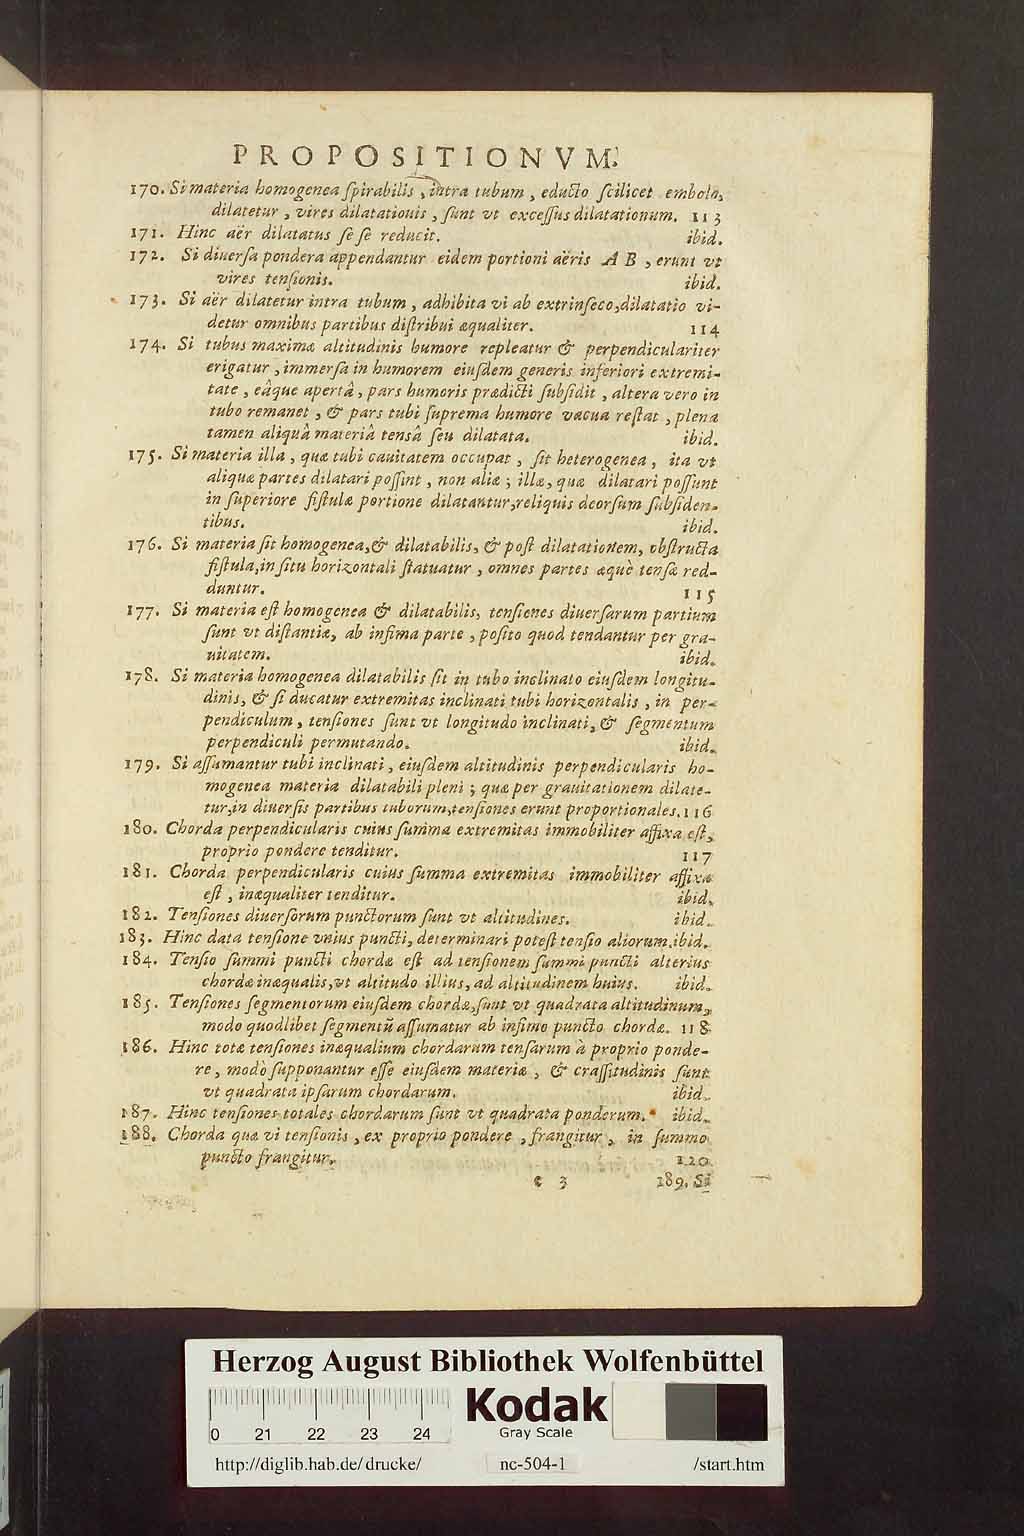 PROPOSITIONVM.
170. Si materia homogenea ſpirabilis, intra tubum, educto ſcilicet embolo,
dilatetur, vires dilatationis, ſunt vt exceſſus dilatationum. 113
171. Hinc aër dilatatus ſe ſe reducit. ibid.
172. Si diuerſa pondera appendantur eidem portioni aëris AB, erunt vt
vires tenſionis. ibid.
173. Si aër dilatetur intra tubum, adhibita vi ab extrinſeco, dilatatio vi-
detur omnibus partibus diſtribui æqualiter. 114
174. Si tubus maximæ altitudinis humore repleatur & perpendiculariter
erigatur, immerſa in humorem eiuſdem generis inferiori extremi-
tate, eâque apertâ, pars humoris prædicti ſubſidit, altera vero in
tubo remanet, & pars tubi ſuprema humore vacua reſtat, plena
tamen aliquâ materiâ tensâ ſeu dilatata. ibid.
175. Si materia illa, quæ tubi cauitatem occupat, ſit heterogenea, ita vt
aliquæ partes dilatari poſſint, non aliæ; illæ, quæ dilatari poſſunt
in ſuperiore fiſtulæ portione dilatantur, reliquis deorſum ſubſiden-
tibus. ibid.
176. Si materia ſit homogenea, & dilatabilis, & poſt dilatationem, obſtructa
fiſtula, in ſitu horizontali ſtatuatur, omnes partes æquè tenſæ red-
duntur. 115
177. Si materia eſt homogenea & dilatabilis, tenſiones diuerſarum partium
ſunt vt diſtantiæ, ab infima parte, poſito quod tendantur per gra-
uitatem. ibid.
178. Si materia homogenea dilatabilis ſit in tubo inclinato eiuſdem longitu-
dinis, & ſi ducatur extremitas inclinati tubi horizontalis, in per-
pendiculum, tenſiones ſunt vt longitudo inclinati, & ſegmentum
perpendiculi permutando. ibid.
179. Si aſſumantur tubi inclinati, eiuſdem altitudinis perpendicularis ho-
mogenea materia dilatabili pleni; quæ per grauitationem dilate-
tur, in diuerſis partibus tuborum, tenſiones erunt proportionales. 116
180. Chorda perpendicularis cuius ſumma extremitas immobiliter affixa eſt,
proprio pondere tenditur. 117
181. Chorda perpendicularis cuius ſumma extremitas immobiliter affixa
eſt, inæqualiter tenditur. ibid.
182. Tenſiones diuerſorum punctorum ſunt vt altitudines. ibid.
183. Hinc data tenſione vnius puncti, determinari poteſt tenſio aliorum. ibid.
184. Tenſio ſummi puncti chordæ eſt ad tenſionem ſummi puncti alterius
chordæ inæqualis, vt altitudo illius, ad altitudinem huius. ibid.
185. Tenſiones ſegmentorum eiuſdem chordæ, ſunt vt quadrata altitudinum,
modo quodlibet ſegmentũ aſſumatur ab infimo puncto chordæ. 118
186. Hinc totæ tenſiones inæqualium chordarum tenſarum à proprio ponde-
re, modò ſupponantur eſſe eiuſdem materiæ, & craſſitudinis ſunt
vt quadrata ipſarum chordarum. ibid.
187. Hinc tenſiones totales chordarum ſunt vt quadrata ponderum. ibid.
188. Chorda quæ vi tenſionis, ex proprio pondere, frangitur, in ſummo
puncto frangitur. 120
e 3 189. Si
Herzog August Bibliothek Wolfenbüttel
Kodak
Gray Scale
0 21 22 23 24
http://diglib.hab.de/drucke/ nc-504-1 /start.htm